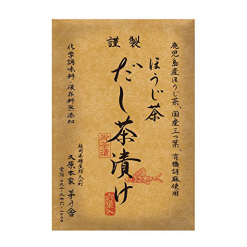 謹製
鹿児島産ほうじ茶、国産三つ葉、有機胡麻使用
ほうじ茶
だし茶漬け
化学調味料・保存料無添加
久原本家 茅乃舎